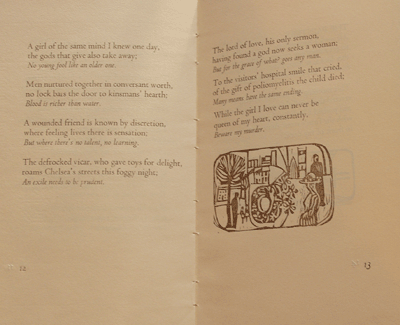 A girl of the same mind I knew one day,
the gods that give also take away;
No young fool like an older one.
Men nurtured together in conversant worth,
no lock bars the door to kinsmans' hearth;
Blood is thicker than water.
A wounded friend is known by discretion,
where feeling lives there is sensation;
But where there's no talent, no learning.
The defrocked vicar, who gave toys for delight,
roams Chelsea's streets this foggy night;
An exile needs to be prudent.
12
The lord of love, his only sermon,
having found a god now seeks a woman;
But for the grace of what? goes any man.
To the visitors' hospital smile that cried,
of the gift of poliomyelitis the child died;
Many means have the same ending.
While the girl I love can never be
queen of my heart, constantly,
Beware my murder.
13